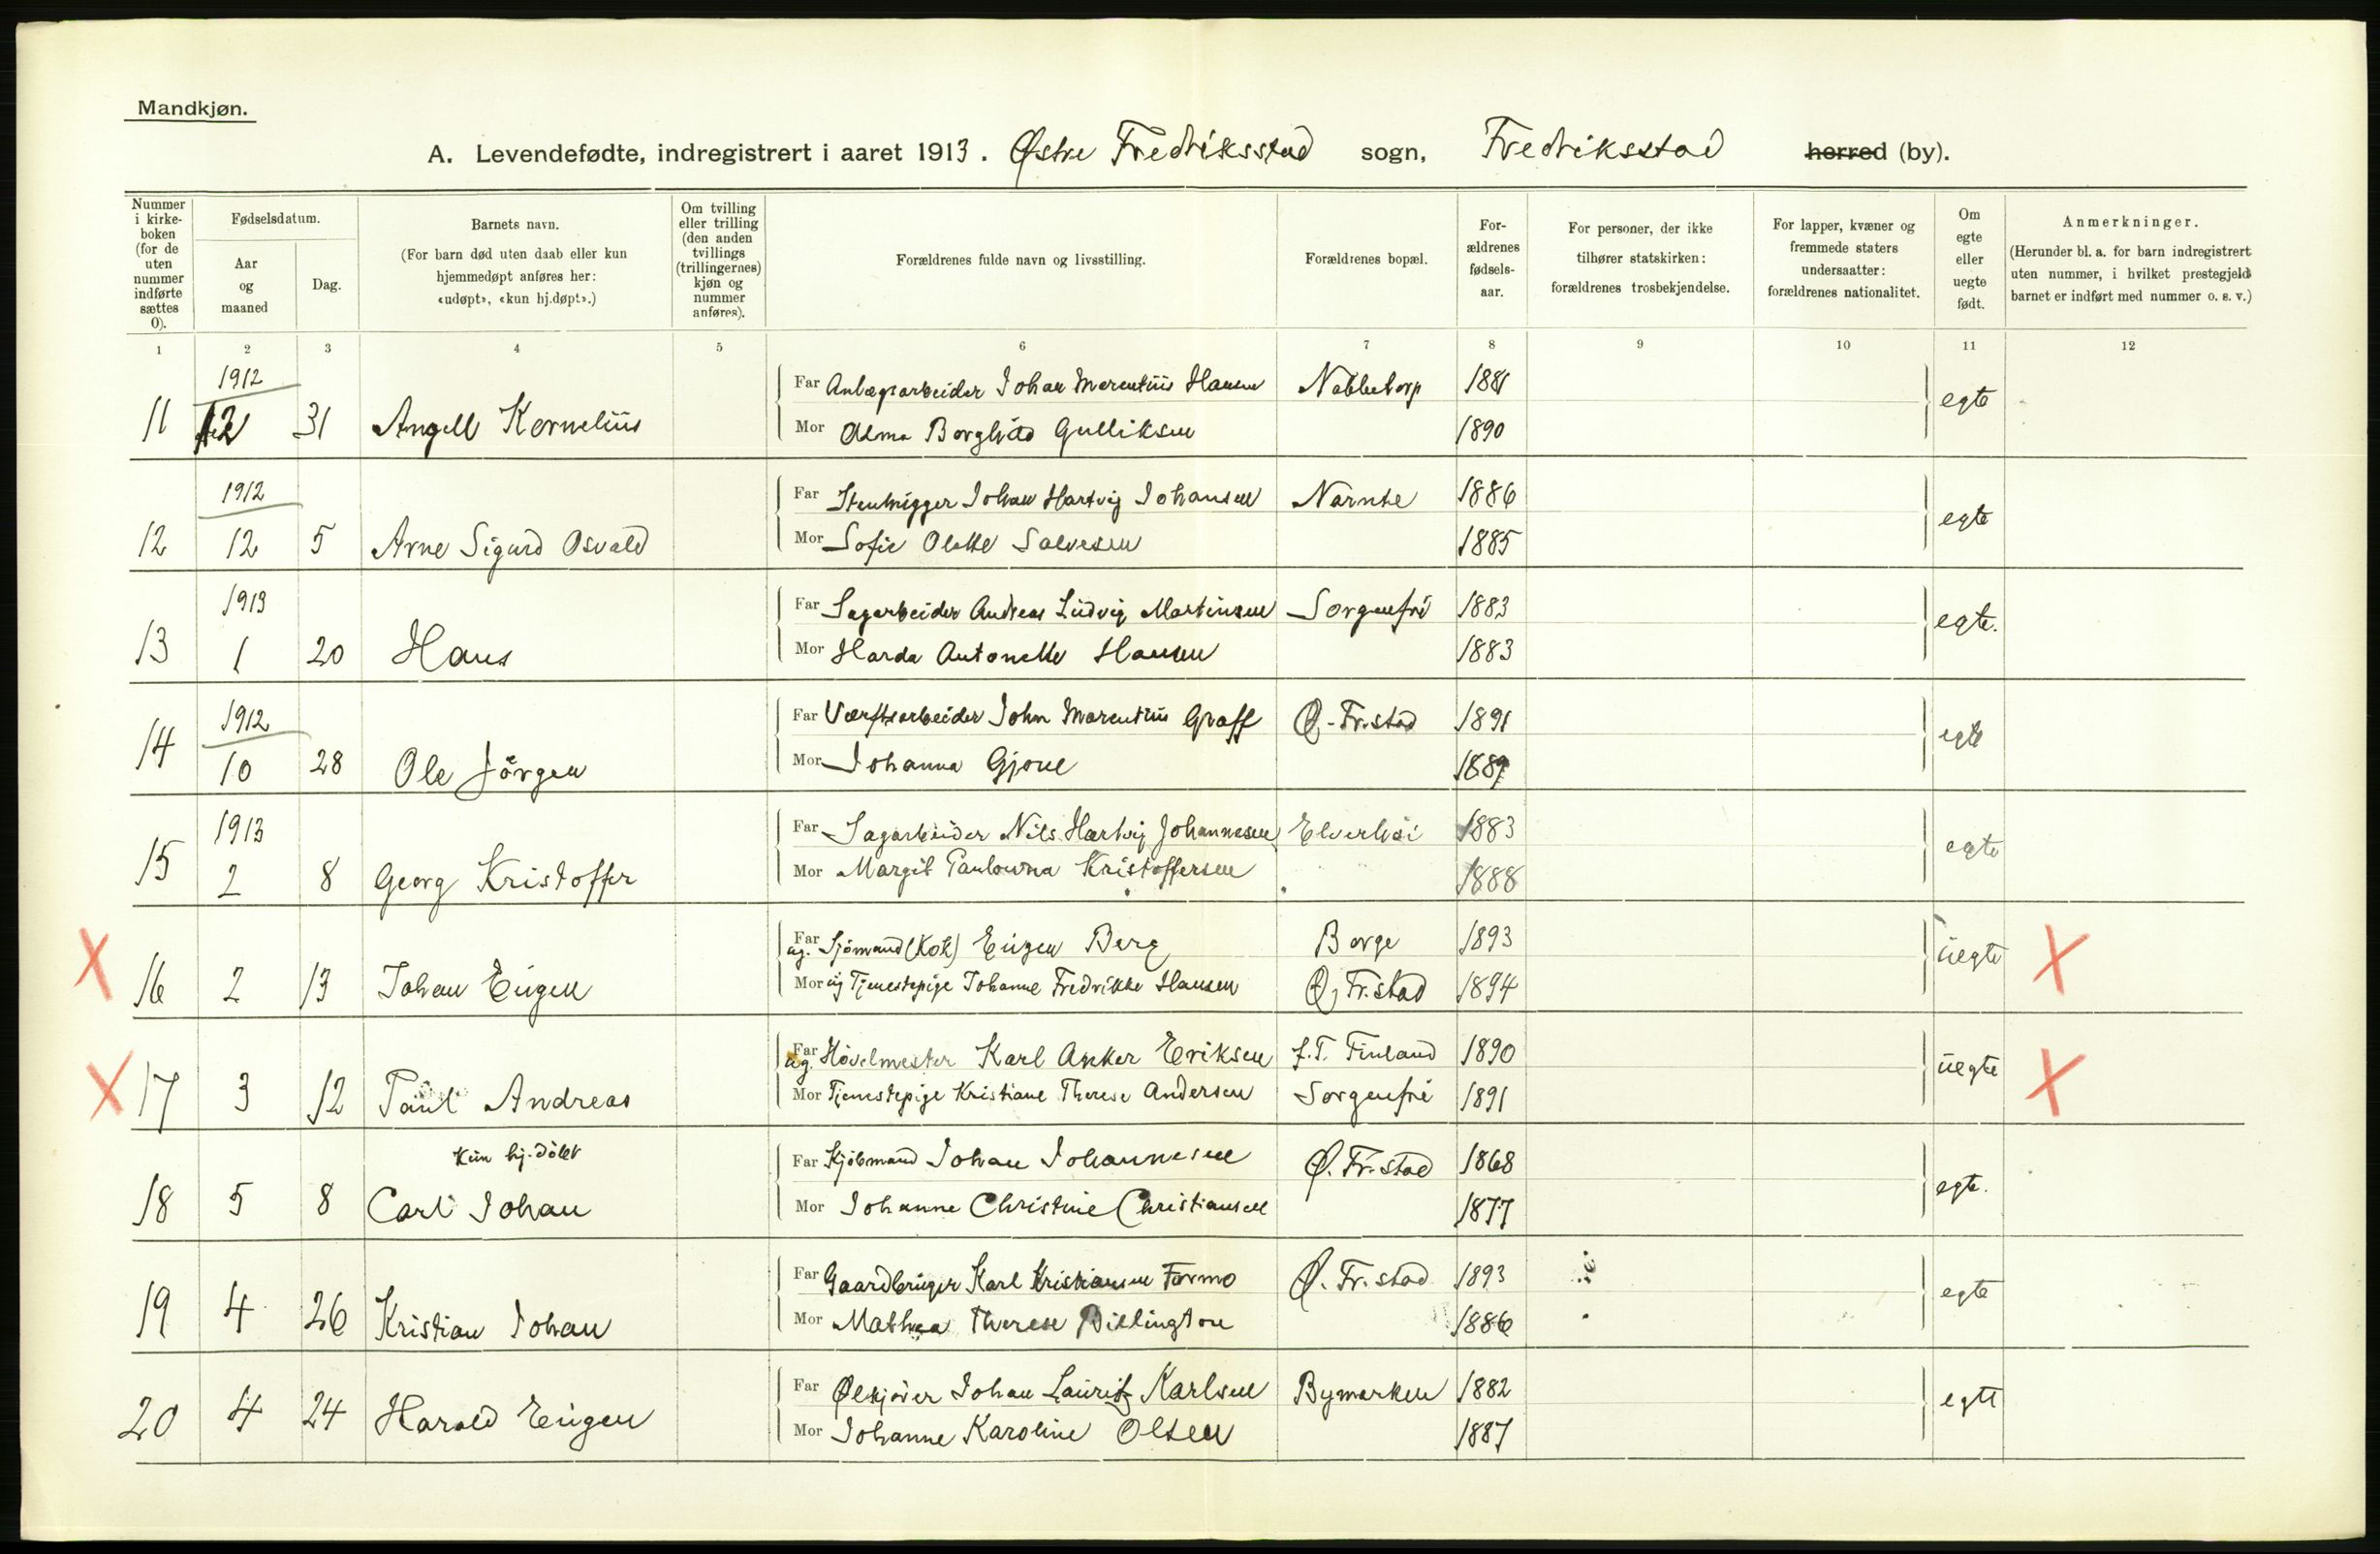 Mandkjøn.
A. Levendefødte, indregistrert i aaret 1913. Østre Fredriksstad sogn, Fredriksstad herred (by).
Nummer i kirke-boken (for de uten nummer indførte sættes 0).
Fødselsdatum.
Aar og maaned
Dag.
Barnets navn.
(For barn død uten daab eller kun hjemmedøpt anføres her: «udøpt», «kun hj.døpt».)
Om tvilling eller trilling (den anden tvillings (trillingernes) kjøn og nummer anføres).
Forældrenes fulde navn og livsstilling.
Forældrenes bopæl.
For-ældrenes fødsels-aar.
For personer, der ikke tilhører statskirken: forældrenes trosbekjendelse.
For lapper, kvæner og fremmede staters undersaatter: forældrenes nationalitet.
Om egte eller uegte født.
Anmerkninger.
(Herunder bl. a. for barn indregistrert uten nummer, i hvilket prestegjeld barnet er indført med nummer o. s. v.)
1 2 3 4 5 6 7 8 9 10 11 12
1912
Far Anlægsarbeider Johan Marentius Hansen Nabbetorp 1881
11 12 31 Angell Kornelius egte
Mor Alma Borghild Gulliksen 1890
1912
Far Stenhugger Johan Hartvig Johansen Narnte 1886
12 12 5 Arne Sigurd Osvald egte
Mor Sofie Olette Salvesen 1885
1913
Far Sagarbeider Andreas Ludvig Martinsen Sorgenfri 1883
13 1 20 Hans egte.
Mor Harda Antonette Hansen 1883
1912
Far Værftsarbeider John Marentius Graff Ø. Fr.stad 1891
14 10 28 Ole Jörgen egte
Mor Johanna Gjone 1889
1913
Far Sagarbeider Nils Hartvig Johannesen Elverhöi 1883
15 2 8 Georg Kristoffer egte
Mor Margit Paulowna Kristoffersen 1888
Far ug. Sjömand (Kok) Eugen Berg Borge 1893
X 16 2 13 Johan Eugen uegte X
Mor ug Tjenestepige Johanne Fredrikke Hansen Ø. Fr.stad 1894
Far ug. Hövelmester Karl Anker Eriksen f.T. Finland 1890
X 17 3 12 Paul Andreas uegte X
Mor Tjenestepige Kristiane Therese Andersen Sorgenfri 1891
Kun hj. döbt
Far Kjöbmand Johan Johannesen Ø. Fr.stad 1868
18 5 8 Carl Johan egte.
Mor Johanne Christine Christiansen 1877
Far Gaardbruger Karl Kristiansen Formo Ø. Fr.stad 1893
19 4 26 Kristian Johan egte
Mor Mathea Therese Billington 1886
Far Ølkjörer Johan Lauritz Karlsen Bymarken 1882
20 4 24 Harald Eugen egte
Mor Johanne Karoline Olsen 1887